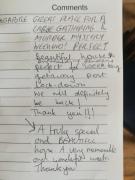 Comments
GREAT PLACE FOR A
LARGE GATHERING &
MURDER MYSTERY
WEEKEND! PERFECT
Beautiful house &
perfect for weekend
getaway post
lock-down
We will definitely
be back!
Thank you!!
A truly special
and
A very memorable
and wonderful week.
Thank you